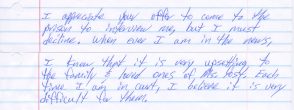 I appreciate your offer to come to the
prison to interview me, but I must
decline. When ever I am in the news,
I know that it is very upsetting to
the family & loved ones of Ms. Post. Each
time I am in court, I believe it is very
difficult for them.